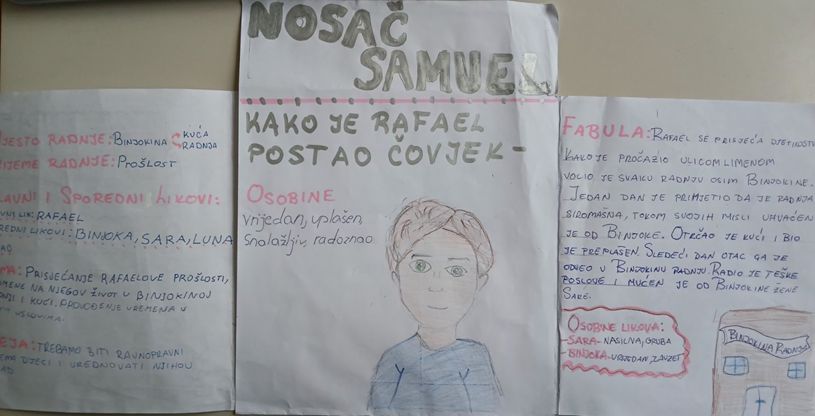 JESTO RADNJE: BINJOKINA KUĆA
RADNJA
RIJEME RADNJE: PROŠLOST
LAVNI I SPOREDNI LIKOVI:
VNI LIK: RAFAEL
REDNI LIKOVI: BINJOKA, SARA, LUNA
MA: PRISJEĆANJE RAFAELOVE PROŠLOSTI,
MENE NA NJEGOV ŽIVOT U BINJOKINOJ
NJI I KUĆI, PROVOĐENJE VREMENA U
USLOVIMA.
EJA: TREBAMO BITI RAVNOPRAVNI
DJECI I VREDNOVATI NJIHOV
AD
NOSAČ
SAMUEL
KAKO JE RAFAEL
POSTAO ČOVJEK-
OSOBINE
Vrijedan, uplašen,
Snalažljiv, radoznao
FABULA: RAFAEL SE PRISJEĆA DJETINJSTV
KAKO JE PROČAZIO ULICOM LIMENOM
VOLIO JE SVAKU RADNJU OSIM BINJOKINE.
JEDAN DAN JE PRIMJETIO DA JE RADNJA
SIROMAŠNA, TOKOM SVOJIH MISLI UHVAĆEN
JE OD BINJOKE. OTRČAO JE KUĆI I BIO
JE PREPLAŠEN. SLEDEĆI DAN OTAC GA JE
ODVEO U BINJOKINU RADNJU. RADIO JE TEŠKE
POSLOVE I MUČEN JE OD BINJOKINE ŽENE
SARE.
OSOBINE LIKOVA:
-SARA- NASILNA, GRUBA
-BINJOKA- VRIJEDAN, ZAUZET
BINJOKINA RADNJA